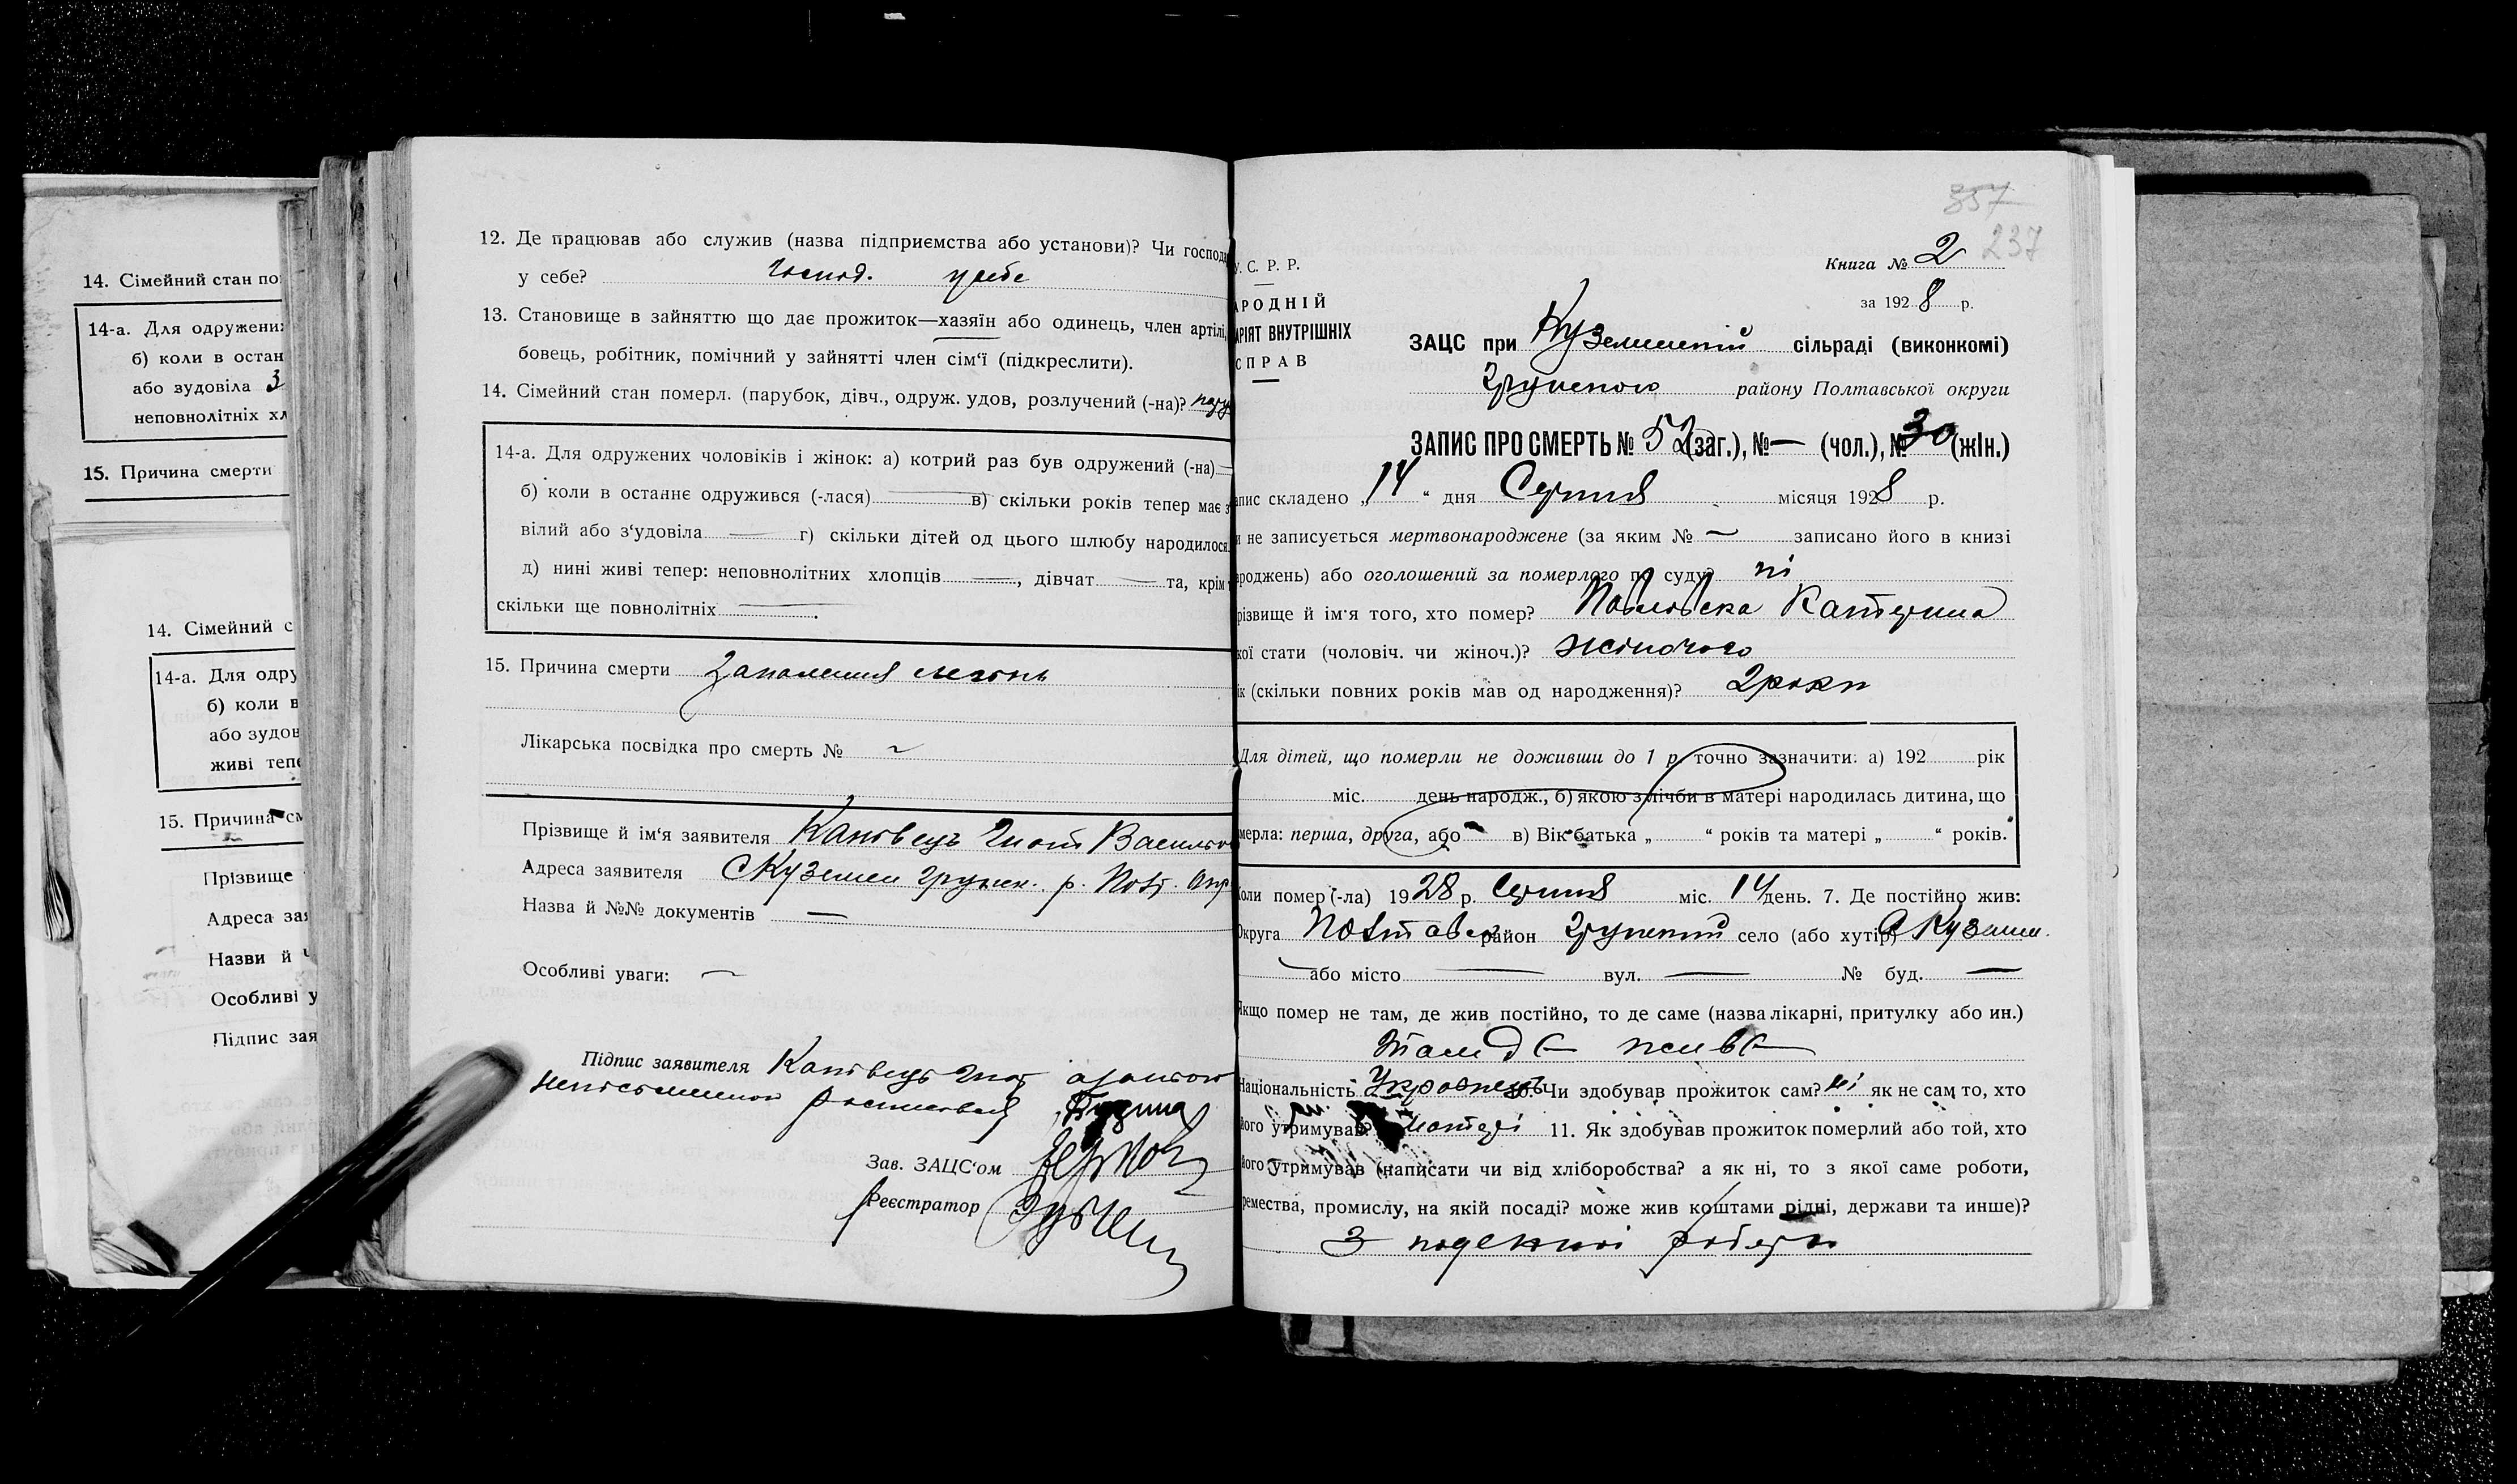 14. Сімейний стан по
14-а. Для одружени
б) коли в остан
або зудовіла З
неповнолітніх хл
15. Причина смерти
14. Сімейний с
14-а. Для одру
б) коли в
або зудов
живі тепе
15. Причина см
Прізвище
Адреса зая
Назви й
Особливі у
Підпис зая
12. Де працював або служив (назва підприємства або установи)? Чи господа
у себе? господ. у себе
13. Становище в зайняттю що дає прожиток—хазяїн або одинець, член артілі,
бовець, робітник, помічний у зайнятті член сім'ї (підкреслити).
14. Сімейний стан померл. (парубок, дівч., одруж. удов, розлучений (-на)? пару
14-а. Для одружених чоловіків і жінок: а) котрий раз був одружений (-на) —
б) коли в останнє одружився (-лася) — в) скільки років тепер має з
вілий або з'удовіла — г) скільки дітей од цього шлюбу народилося
д) нині живі тепер: неповнолітних хлопців —, дівчат — та, крім
скільки ще повнолітніх —.
15. Причина смерти Запалення легень
Лікарська посвідка про смерть № ~
Прізвище й ім'я заявителя Гнат
Адреса заявителя С Куземен Грунен. р. Пол. Окр
Назва й №№ документів —
Особливі уваги: —
Підпис заявителя Гнат
Зав. ЗАЦС'ом
Реєстратор
357
237
Книга № 2
за 1928 р.
У. С. Р. Р.
АРОДНІЙ
АРІЯТ ВНУТРІШНІХ
СПРАВ
ЗАЦС при Куземинській сільраді (виконкомі)
району Полтавської округи
ЗАПИС ПРО СМЕРТЬ № 52 (заг.), № — (чол.), № 30 (жін.)
апис складено „14“ дня Серпня місяця 1928 р.
и не записується мертвонароджене (за яким № — записано його в книзі
ароджень) або оголошений за померлого по суду? ні
різвище й ім'я того, хто помер? Катерина
кої стати (чоловіч. чи жіноч.)? жіночого
ік (скільки повних років мав од народження)? 2 роки
Для дітей, що померли не доживши до 1 р. точно зазначити: а) 192 рік
міс. день народж., б) якою злічби в матері народилась дитина, що
мерла: перша, друга, або в) Вік батька „ “ років та матері „ “ років.
Коли помер (-ла) 1928 р. Серпня міс. 14 день. 7. Де постійно жив:
Округа Полтавськ район Грунский село (або хутір) С Куземен.
— або місто — вул. — № буд. —
Якщо помер не там, де жив постійно, то де саме (назва лікарні, притулку або ин.)
Там де жила
Національність Українець Чи здобував прожиток сам? ні як не сам, то, хто
його утримував? матері 11. Як здобував прожиток померлий або той, хто
його утримував (написати чи від хліборобства? а як ні, то з якої саме роботи,
ремества, промислу, на якій посаді? може жив коштами рідні, держави та инше)?
З поденної роботи